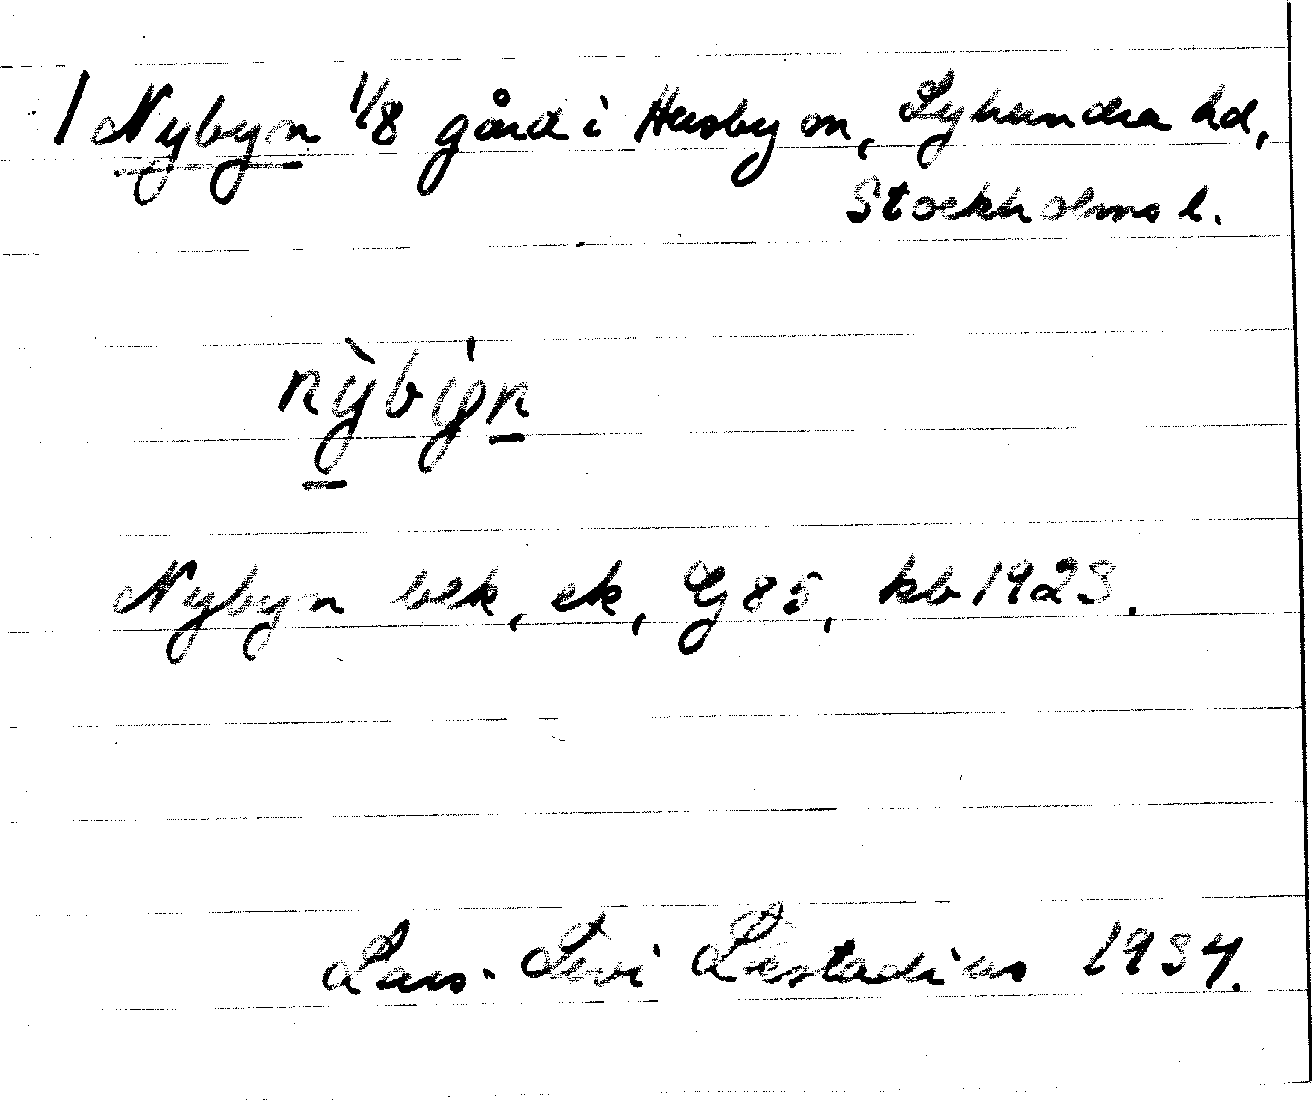 1 Nybyn 1/8 gård i Husby sn, Lyhundra hd,
Stockholms l.
nỳbẏn
Nybyn bek, ek, Gj 85, kb 1923.
Lars-Levi Læstadius 1934.